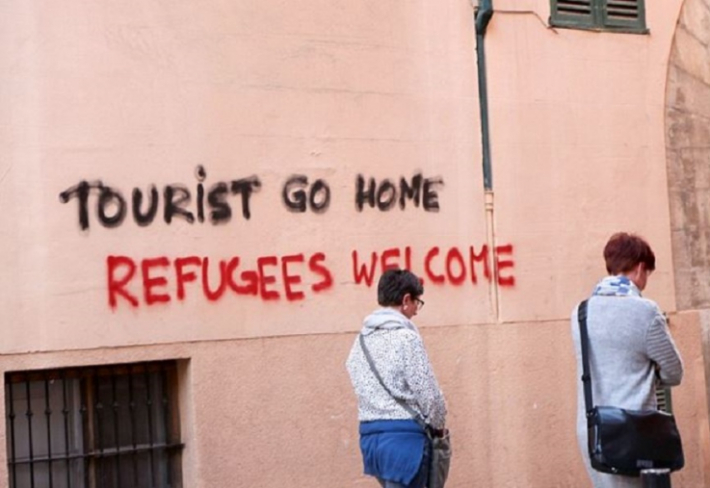 TOURiST GO HOME
REFUGEES WELCOME